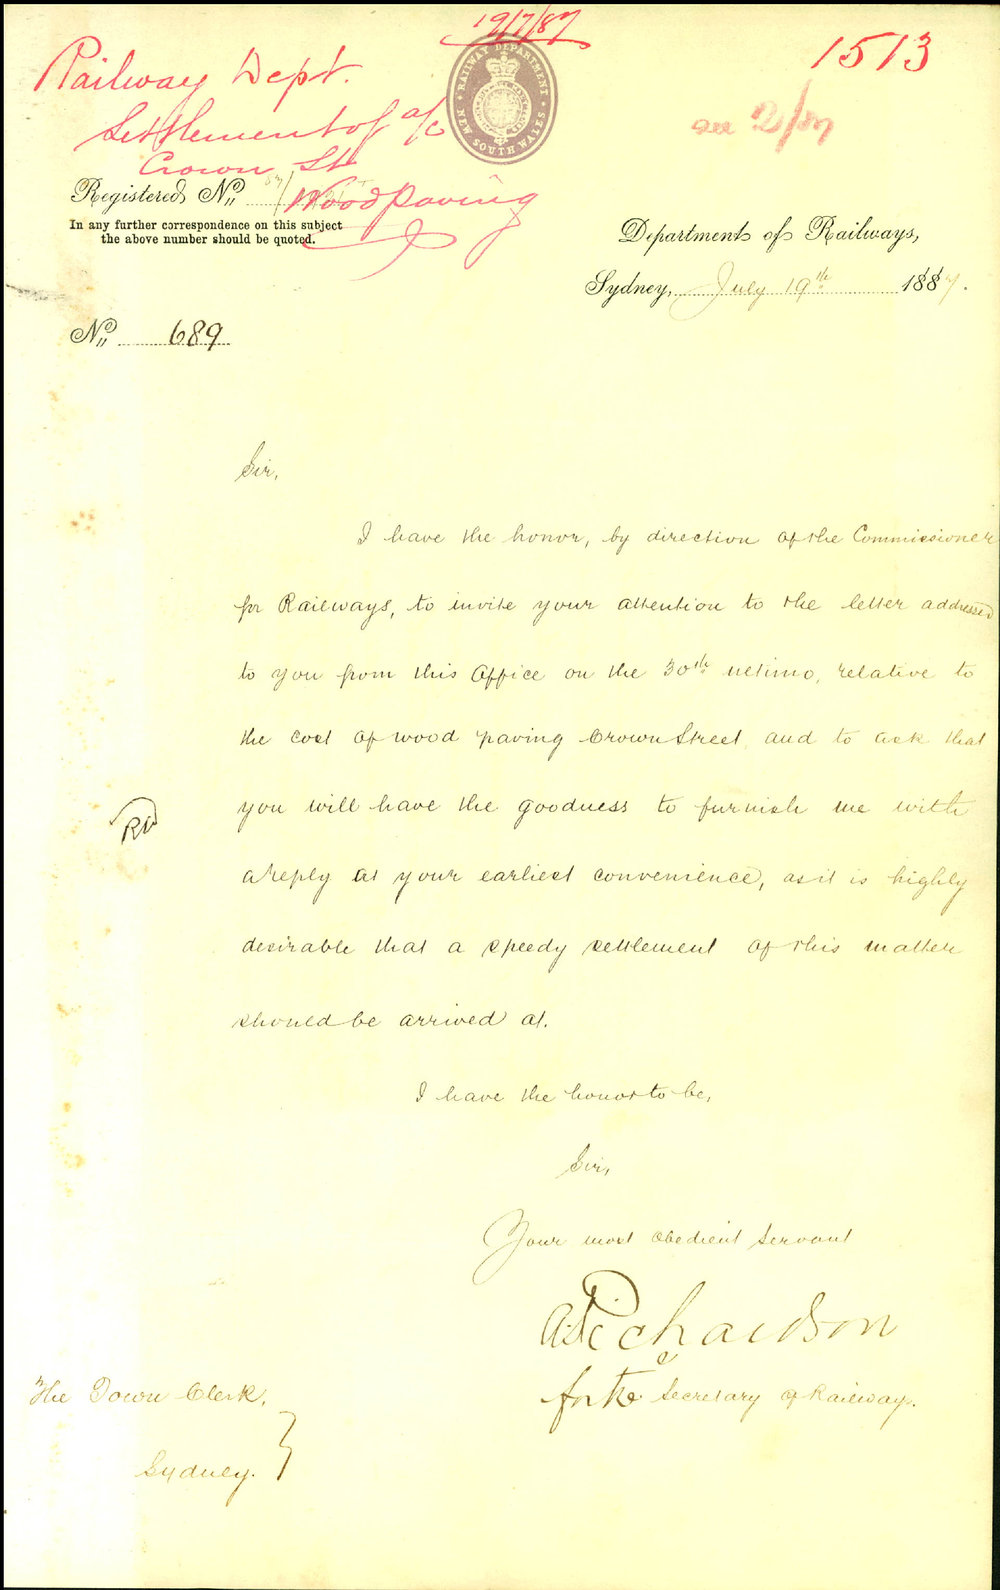 19/7/87
1513
Railway Dept.
Settlement of a/c
Crown St
Wood paving
see 2/87
RAILWAY DEPARTMENT
NEW SOUTH WALES
Registered No. 87/
In any further correspondence on this subject
the above number should be quoted.
Department of Railways,
Sydney, July 19th 1887.
No. 689
Sir,
I have the honor, by direction of the Commissioner
for Railways, to invite your attention to the letter addressed
to you from this Office on the 30th ultimo, relative to
the cost of wood paving Crown Street, and to ask that
you will have the goodness to furnish me with
a reply at your earliest convenience, as it is highly
desirable that a speedy settlement of this matter
should be arrived at.
I have the honor to be,
Sir,
Your most obedient Servant
A. Richardson
for the Secretary of Railways.
The Town Clerk,
Sydney.